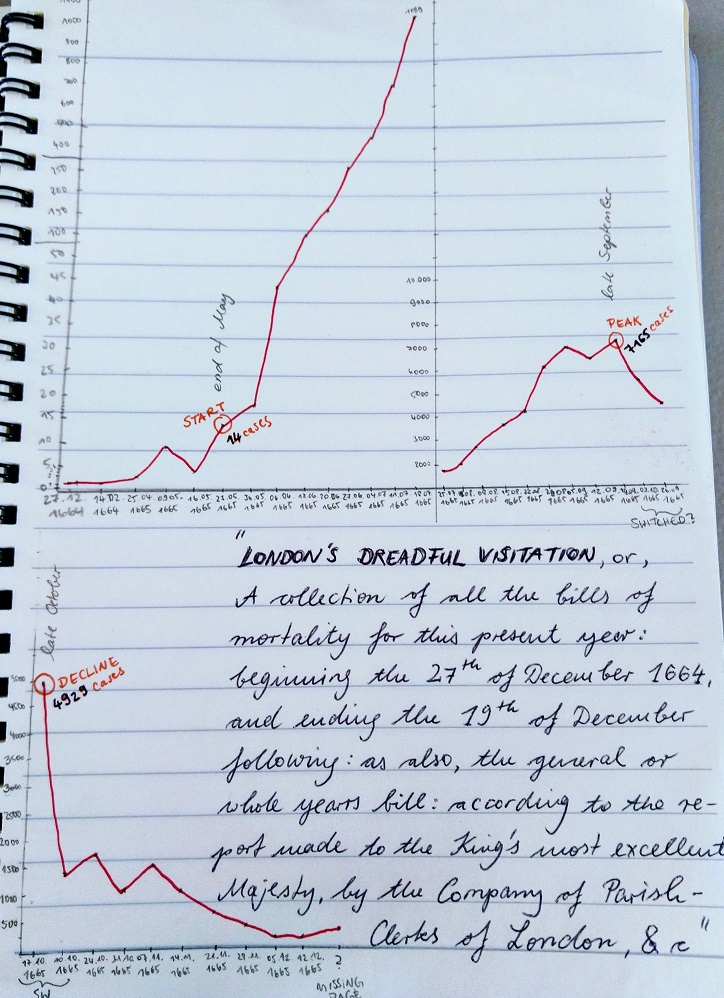 1000
900
800
700
600
500
400
250
200
150
100
50
45
35
30
25
20
15
10
5
1089
end of May
START
14 cases
27.12. 14.02. 25.04. 09.05. 16.05. 23.05. 30.05. 06.06. 13.06. 20.06. 27.06. 04.07. 11.07. 18.07.
1664 1664 1665 1665 1665 1665 1665 1665 1665 1665 1665 1665 1665 1665
late September
10.000
9000
8000
7000
6000
5000
4000
3000
2000
PEAK
7165 cases
15.08. 05.09. 12.09. 03.10. 26.09.
1665 1665 1665 1665 1665 1665 1665 1665 1665 1665
SWITCHED?
"LONDON'S DREADFUL VISITATION, or,
A collection of all the bills of
mortality for this present year:
beginning the 27th of December 1664,
and ending the 19th of December
following: as also, the general or
whole years bill: according to the re-
port made to the King's most excellent
Majesty, by the Company of Parish-
Clerks of London, & c"
late October
DECLINE
4929 cases
5000
4500
4000
3500
3000
2500
2000
1500
1000
500
17.10. 10.10. 24.10. 31.10. 07.11. 14.11. 21.11. 29.11. 05.12. 12.12. ?
1665 1665 1665 1665 1665 1665 1665 1665 1665 1665
SW
MISSING
PAGE